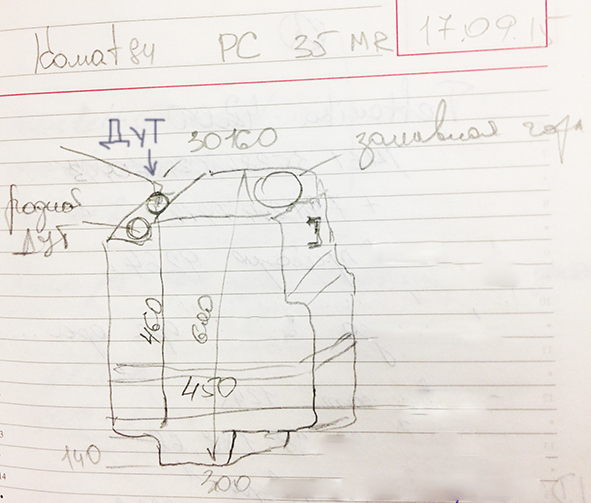 Komatsu PC 35 MR 17.09.15
ДУТ 30160 заливная горл
родной
ДУТ
460
600
450
140
300